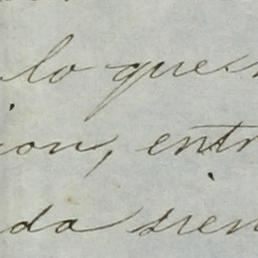 lo que
ion, entr
da sien